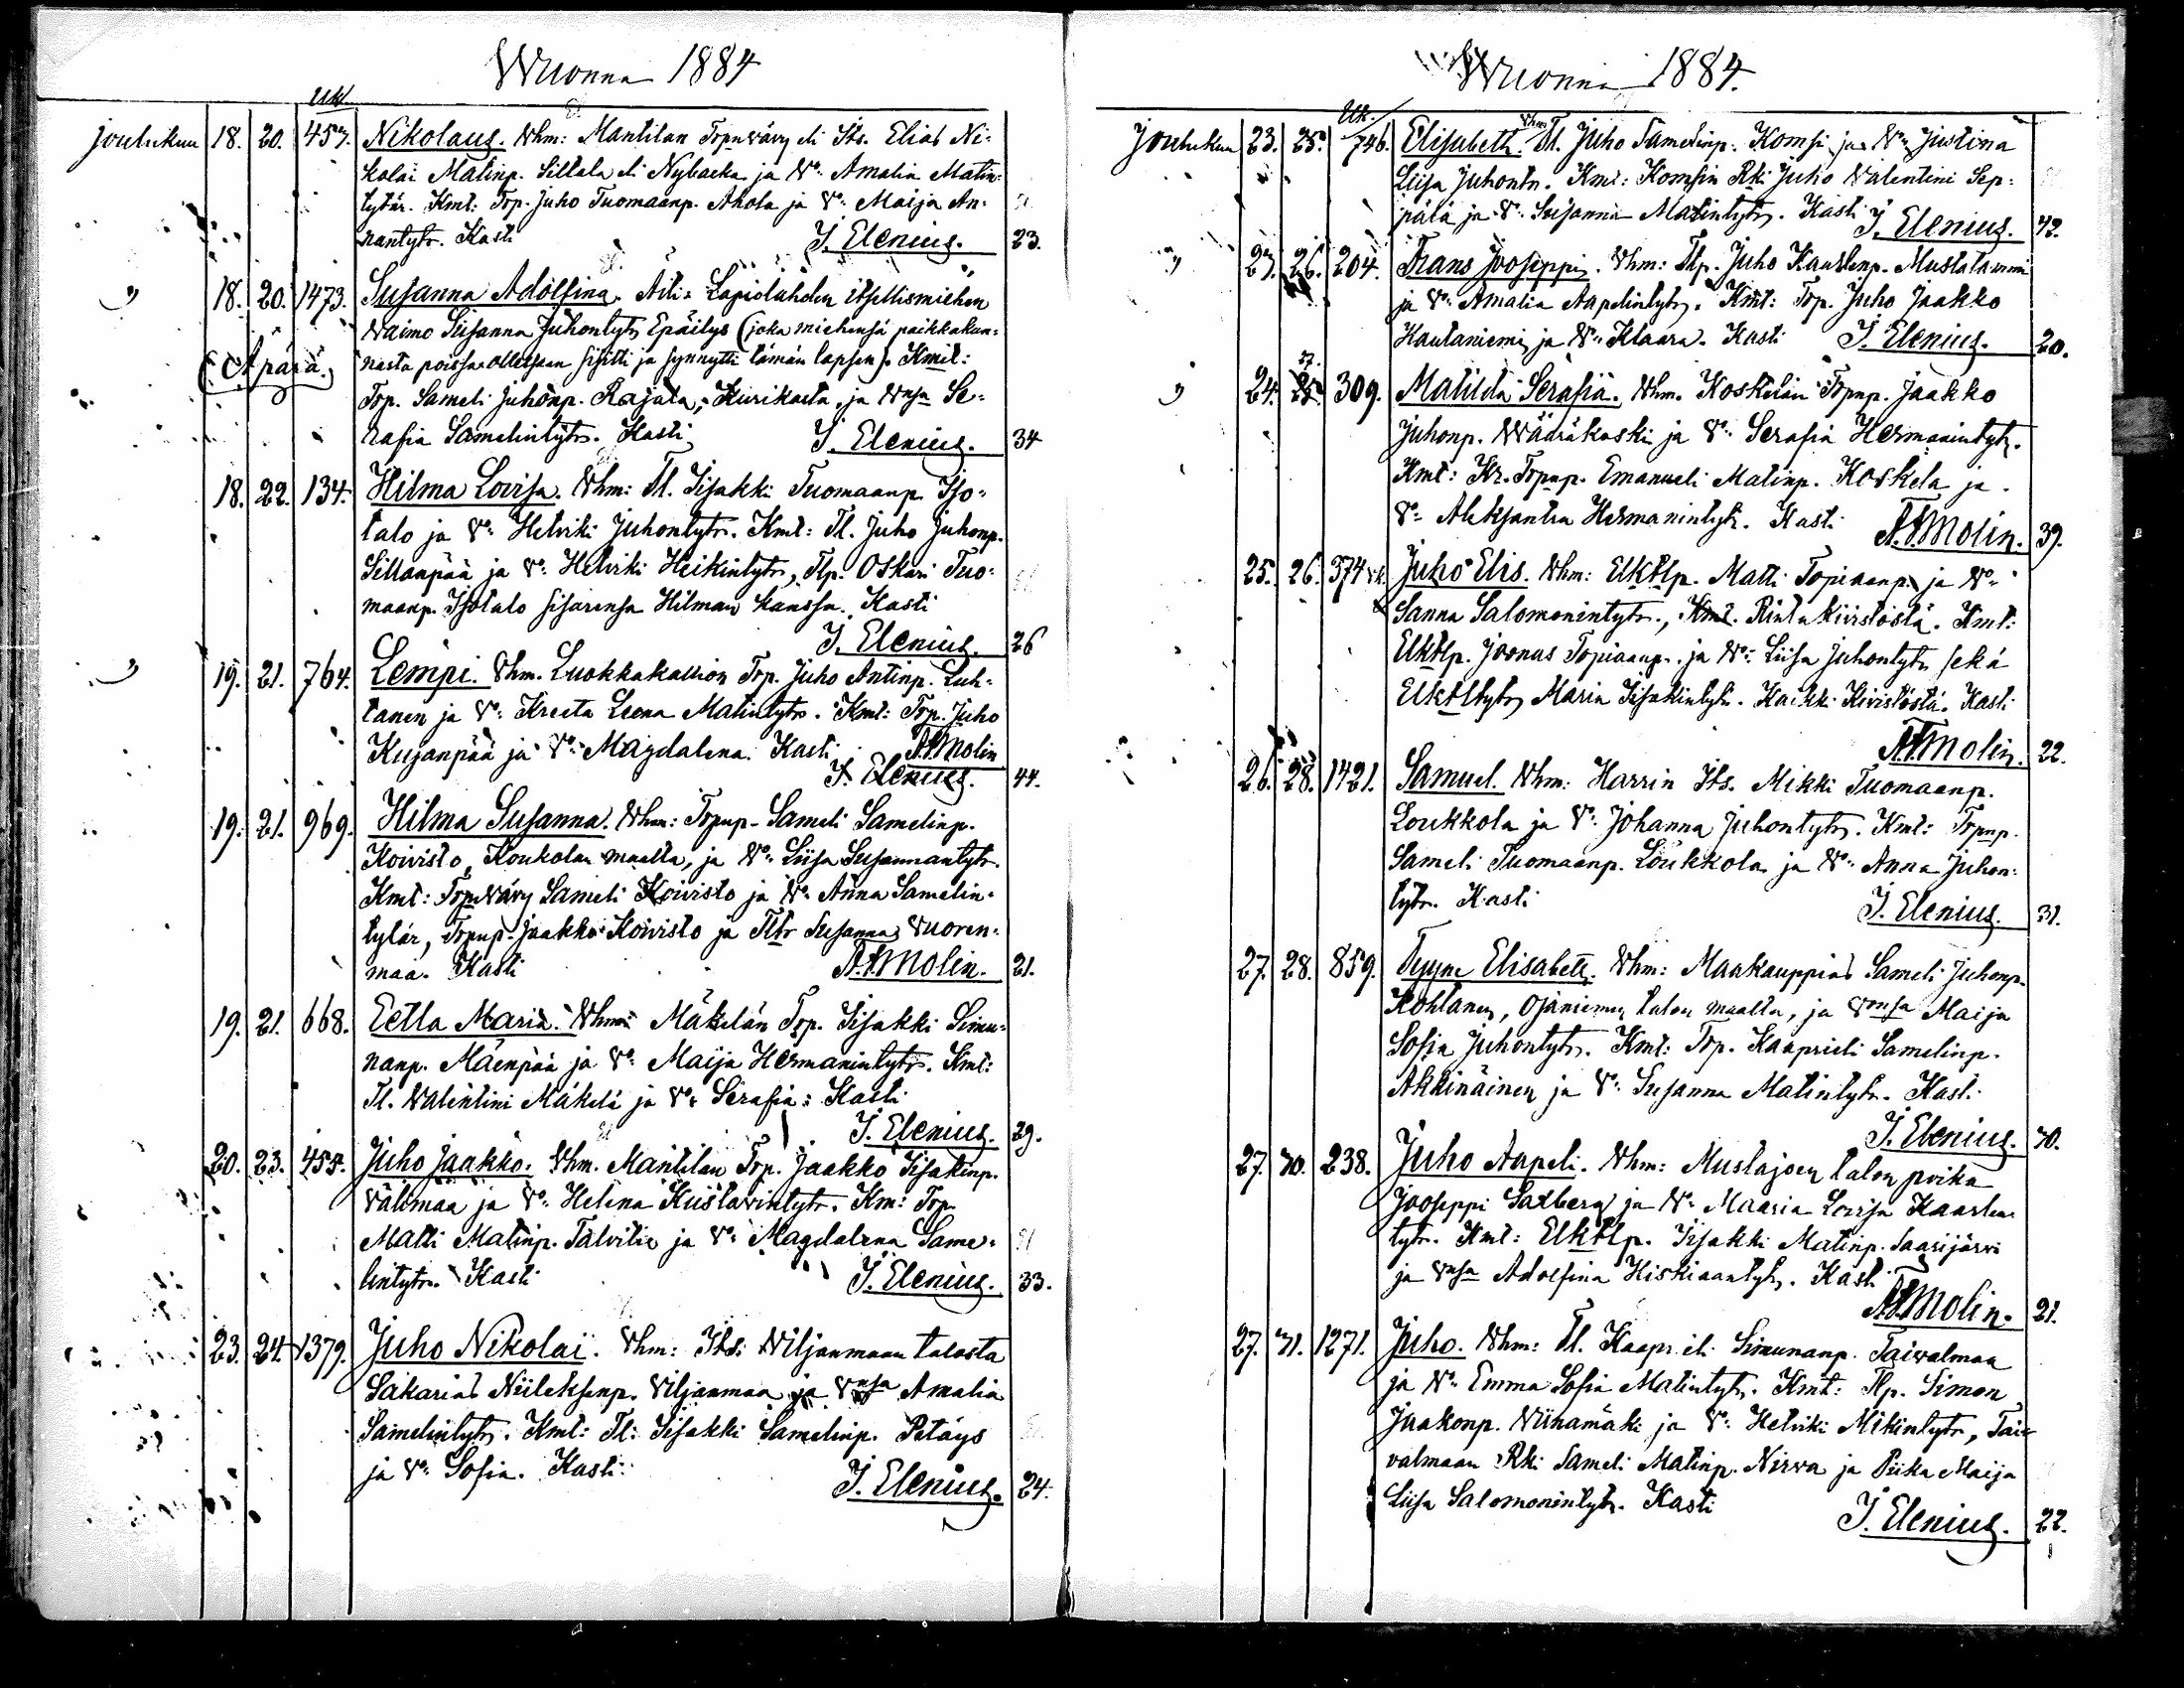 Wuonna 1884
Uk.
Joulukuu 18. 20. 457. Nikolaus. Vhm: Mantilan Torpanvävy eli Its. Elias Ni-
kolai Matinp. Sillala eli Nybacka ja Vo: Amalia Matin-
tytär. Kmt: Trp. Juho Tuomaanp. Ahola ja Vo: Maija An-
nantytr. Kasti J. Elenius. 23.
" 18. 20. 1473. Susanna Adolfina. Äiti: Lapiolahden itsellismiehen
(Äpärä.) vaimo Susanna Juhontytr Epäilys (joka miehensä paikkakun-
nasta poissa ollessaan siitti ja synnytti tämän lapsen). Kmit:
Trp. Sameli Juhonp. Rajala, Kurikasta, ja Vnsa Se-
rafia Samelintytr. Kasti J. Elenius. 34
18. 22. 134. Hilma Lovisa. Vhm: Tl. Iisakki Tuomaanp. Iso-
talo ja Vo: Helviki Juhontytr. Kmt: Tl. Juho Juhonp.
Sillanpää ja Vo: Helviki Heikintytr, Tlp. Oskari Tuo-
maanp. Isotalo sisarensa Hilman kanssa. Kasti
J. Elenius. 26
" 19. 21. 764. Lempi. Vhm. Luokkakallion Trp. Juho Antinp. Luh-
tanen ja Vo: Kreeta Leena Matintytr. Kmt: Trp. Juho
Kujanpää ja Vo: Magdalena. Kasti A.F. Molin
J. Elenius. 44.
19. 21. 969. Hilma Susanna. Vhm: Trpnp. Sameli Samelinp.
Koivisto, Koukolan maalta, ja Vo: Liisa Susannantytr.
Kmt: Trpnvävy Sameli Koivisto ja Vo: Anna Samelin-
tytär, Trpnp. Jaakko Koivisto ja Tltr Susanna Vuoren-
maa. Kasti A.F. Molin. 21.
19. 21. 668. Eetla Maria. Vhm: Mäkelän Trp. Iisakki Simu-
nanp. Mäenpää ja Vo: Maija Hermanintytr. Kmt:
Tl. Valentini Mäkelä ja Vo: Serafia: Kasti
J. Elenius. 29.
20. 23. 455. Juho Jaakko. Vhm. Mantilan Trp. Jaakko Iisakinp.
Välimaa ja Vo: Helena Kustavintytr. Km: Trp.
Matti Matinp. Talvitie ja Vo: Magdalena Same-
lintytr. Kasti J. Elenius. 33.
23. 24. 1379. Juho Nikolai. Vhm: Its. Viljanmaan talosta
Sakarias Niileksenp. Viljanmaa ja Vnsa Amalia
Samelintytr. Kmt: Tl: Iisakki Samelinp. Petäys
ja Vo: Sofia. Kasti: J. Elenius. 24.
Wuonna 1884.
Uk.
Joulukuu 23. 25. 746. Elisabeth. Vhm Tl. Juho Samelinp. Komsi ja Vo: Justina
Liisa Juhontr. Kmt: Komsin Rki Juho Valentini Sep-
pälä ja Vo: Susanna Matintytr. Kasti J. Elenius. 42.
" 23. 26. 204. Frans Jooseppi. Vhm: Tlp. Juho Kaarlenp. Mustatammi
ja Vo: Amalia Aapelintytr. Kmt: Trp. Juho Jaakko
Hautaniemi ja Vo: Klaara. Kasti J. Elenius. 20.
27.
" 24. 25. 309. Matilda Serafia. Vhm. Koskelan Trpnp. Jaakko
Juhonp. Vääräkoski ja Vo: Serafia Hermanintytr.
Kmt: Kr. Trpnp. Emanueli Matinp. Koskela ja
Vo: Aleksantra Hermanintytr. Kasti A.F. Molin. 39.
25. 26. 374 Juho Elis. Vhm: Elktlp. Matti Topiaanp. ja Vo:
Sanna Salomonintytr., Kmt. Rintakiivistöstä. Kmt:
Elktlp. Joonas Topiaanp. ja Vo: Liisa Juhontytr sekä
Elktltytr Maria Iisakintytr. Kaikki Kivistöstä. Kasti
A.F. Molin. 22.
26. 28. 1421. Samuel. Vhm: Harrin Its. Mikki Tuomaanp.
Loukkola ja Vo: Johanna Juhontytr. Kmt: Trpnp.
Sameli Tuomaanp. Loukkola ja Vo: Anna Juhon-
tytr. Kasti J. Elenius. 31.
27. 28. 859. Tyyne Elisabeth. Vhm: Maakauppias Sameli Juhonp.
Kohtanen, Ojaniemen talon maalta, ja Vnsa Maija
Sofia Juhontytr. Kmt: Trp. Kaaprieli Samelinp.
Akkinäinen ja Vo: Susanna Matintytr. Kasti.
J. Elenius. 30.
27. 30. 238. Juho Aapeli. Vhm: Mustajoen talon poika
Jooseppi Saxberg ja Vo: Maaria Lovisa Kaarlen-
tytr. Kmt: Elktlp. Iisakki Matinp. Saarijärvi
ja Vnsa Adolfina Hiskiaantytr. Kasti
A.F. Molin. 21.
27. 31. 1271. Juho. Vhm: Tl. Kaaprieli Simunanp. Taivalmaa
ja Vo: Emma Sofia Matintytr. Kmt: Tlp. Simon
Jaakonp. Viinamäki ja Vo: Helviki Mikintytr, Tai-
valmaan Rki Sameli Matinp. Nirva ja Piika Maija
Liisa Salomonintytr. Kasti J. Elenius. 22.